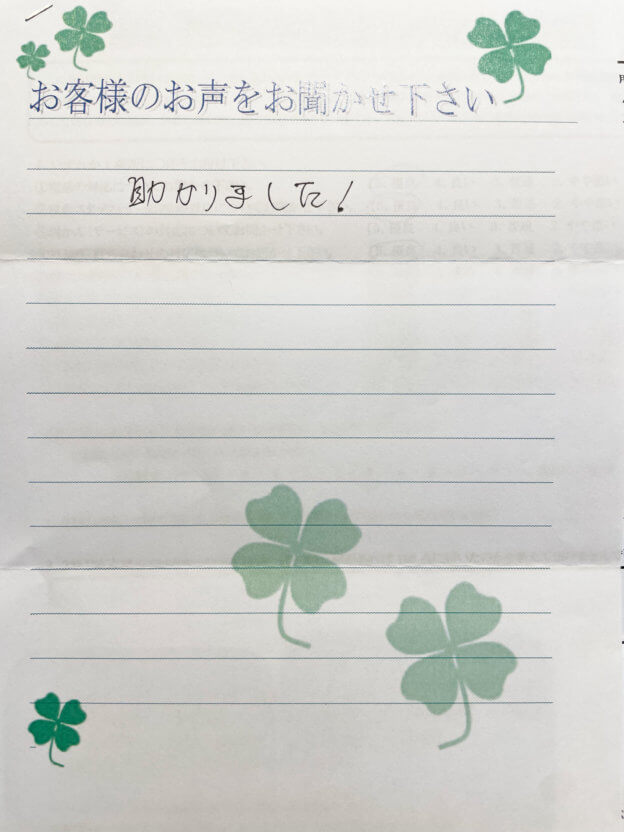 お客様のお声をお聞かせ下さい
助かりました!